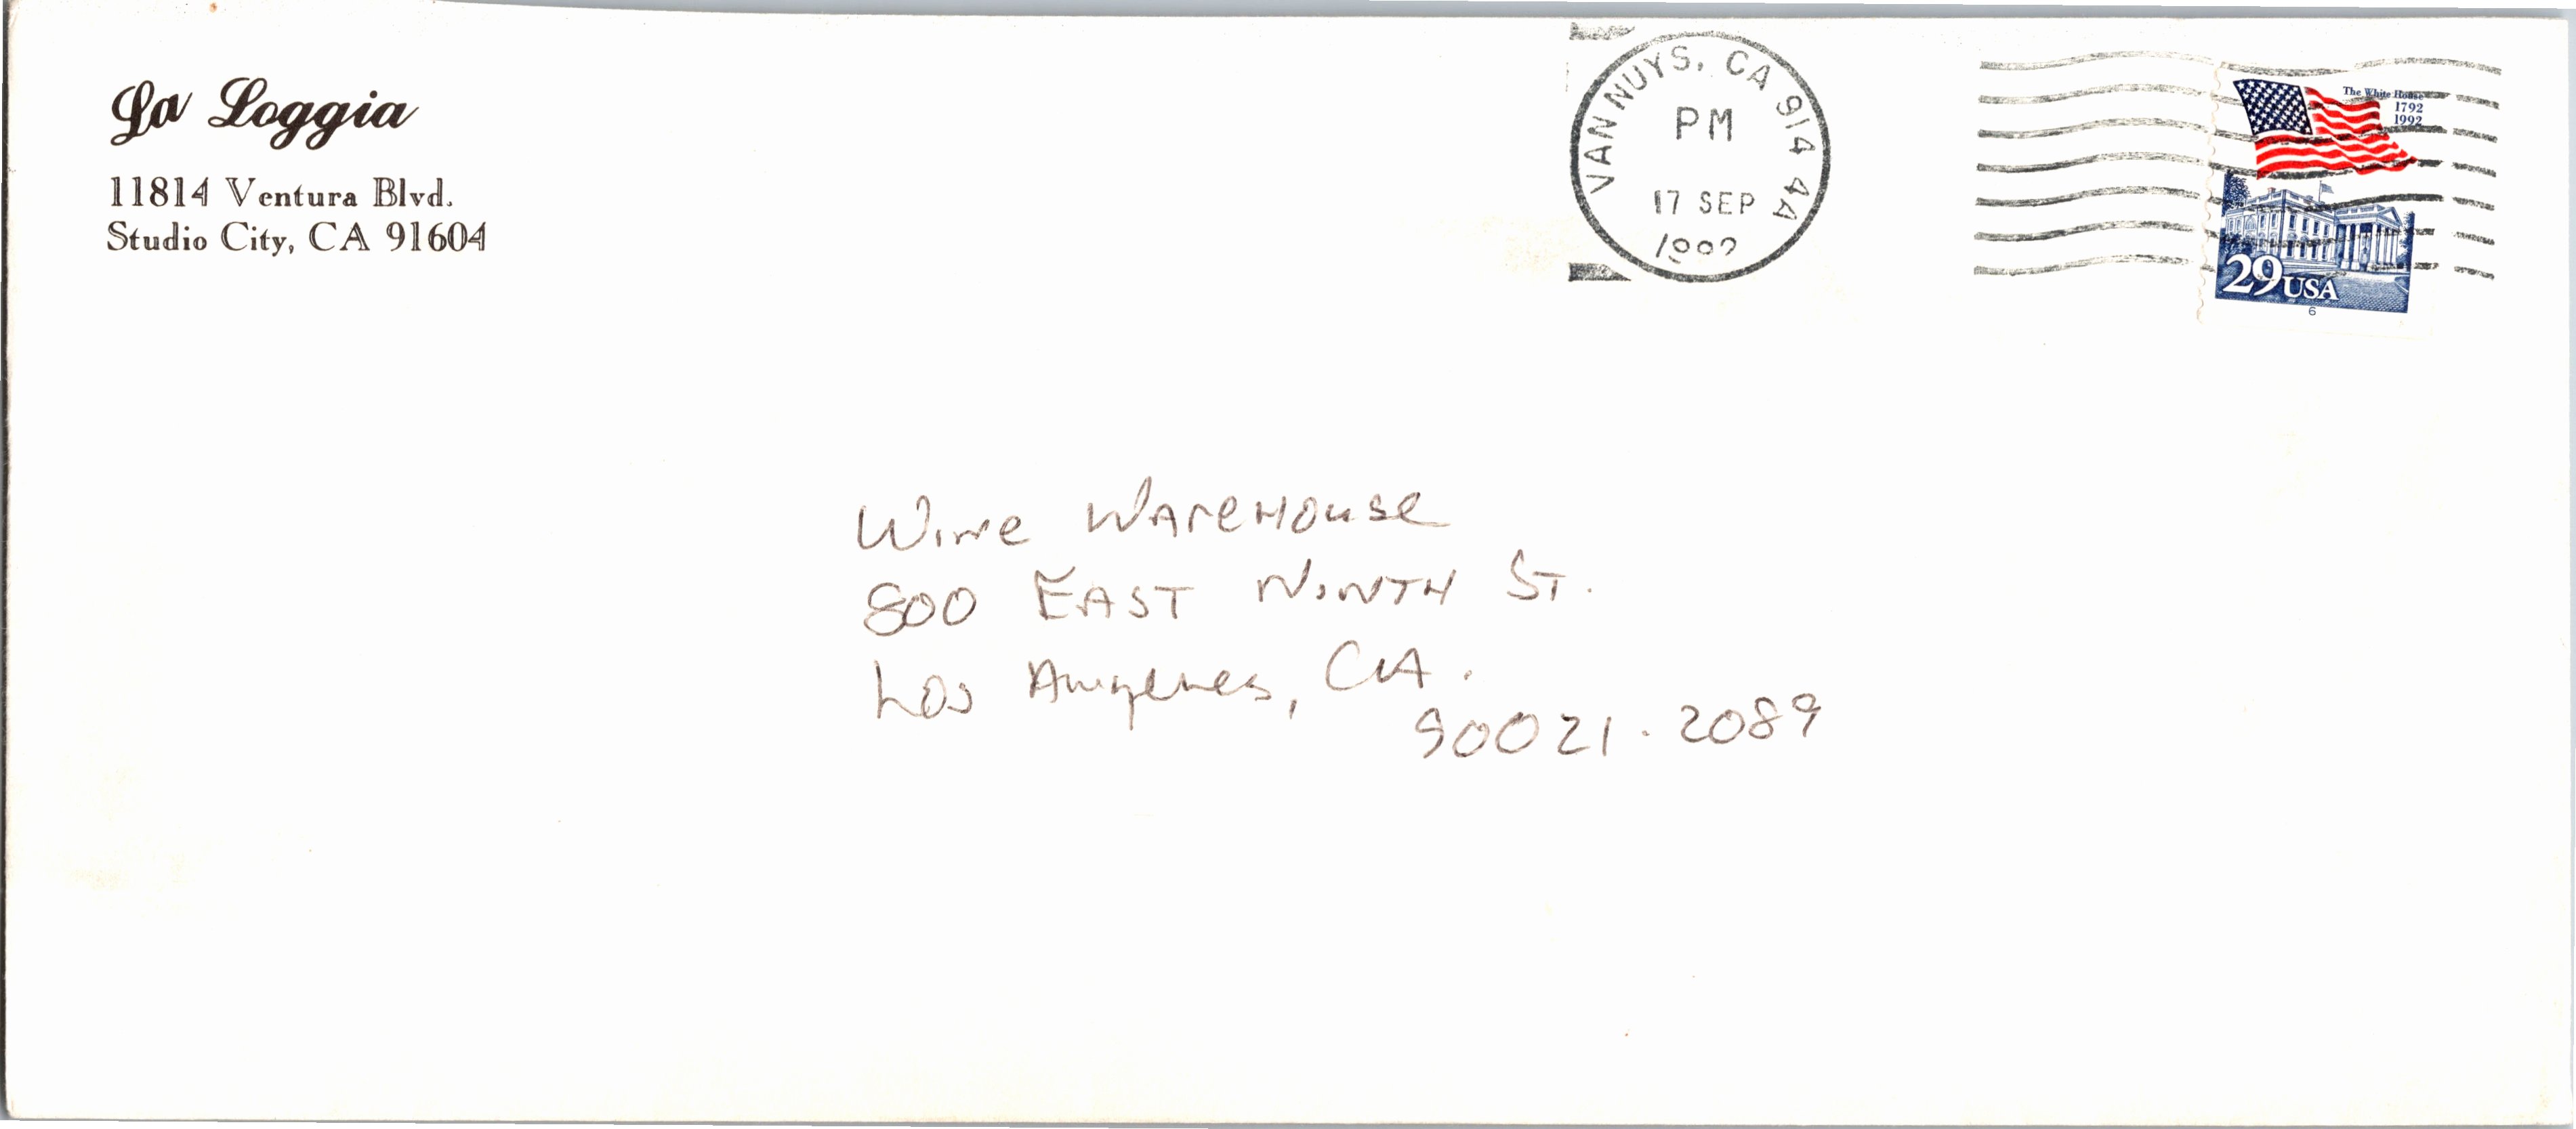 La Loggia
11814 Ventura Blvd.
Studio City, CA 91604
VAN NUYS, CA 914 44
PM
17 SEP
1992
The White House
1792
1992
29 USA
6
Wine Warehouse
800 East Ninth St.
Los Angeles, CA.
90021-2089